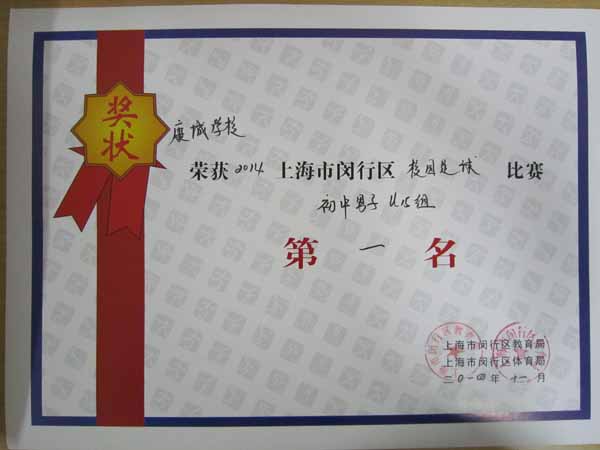 奖状
康城学校
荣获2014上海市闵行区校园足球比赛
初中男子U15组
第一名
上海市闵行区教育局
上海市闵行区体育局
二〇一四年十一月